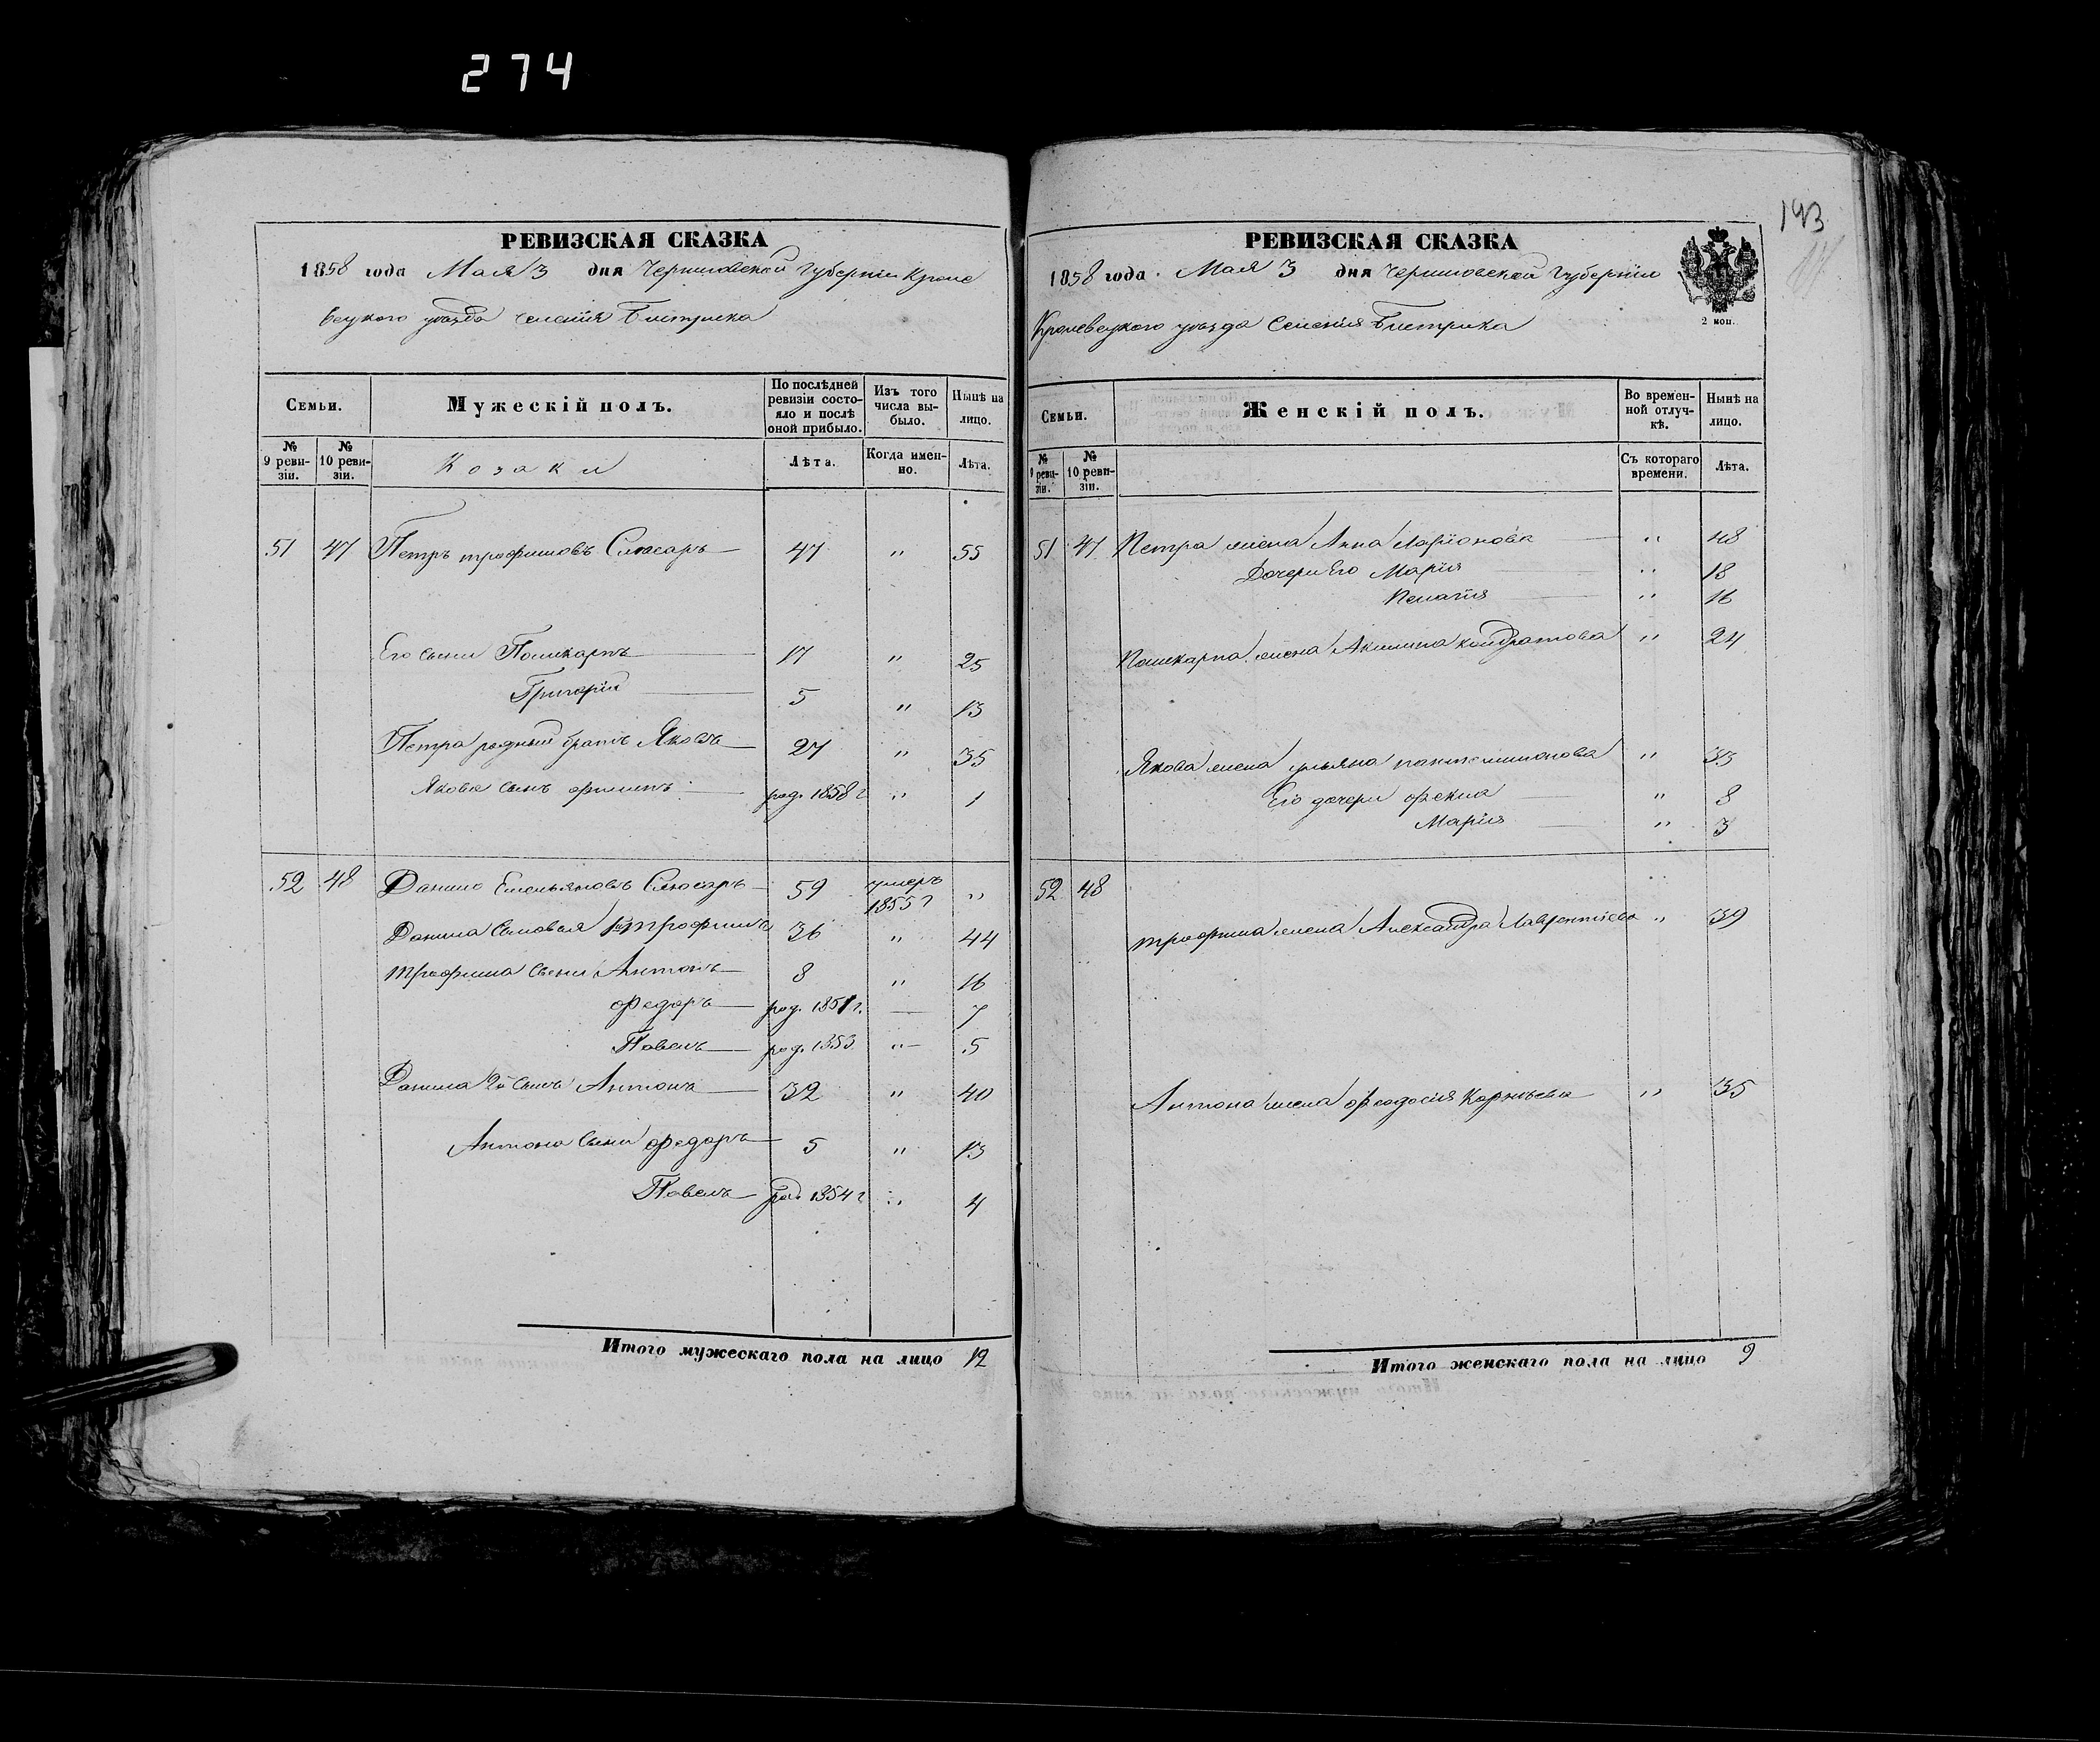 274
РЕВИЗСКАЯ СКАЗКА
1858 года Мая 3 дня Черниговской Губернiи Кроле
вецкого уезда селенiя Бистрика
Семьи.
Мужескiй полъ.
По послѣдней ревизiи состояло и послѣ оной прибыло.
Изъ того числа выбыло.
Нынѣ на лицо.
№ 9 ревизiи.
№ 10 ревизiи.
Козаки
Лѣта.
Когда именно.
Лѣта.
51 47 Петръ трофимовъ Слюсаръ 47 " 55
Его сыни Поликарпъ 17 " 25
Григорiй 5 " 13
Петра родный братъ Яковъ 27 " 35
Якова сынъ филипъ род. 1858 г " 1
52 48 Данило Емельяновъ Слюсаръ 59 умеръ 1855 г "
Данила сыновья 1й трофимъ 36 " 44
трофима сыни Антонъ 8 " 16
федоръ род. 1851 г. — 7
Павелъ род. 1853 " 5
Данила 2й сынъ Антонъ 32 " 40
Антона сыни федоръ 5 " 13
Павелъ род. 1854 г " 4
Итого мужескаго пола на лицо 12
193
РЕВИЗСКАЯ СКАЗКА
1858 года Мая 3 дня Черниговской Губернiи
Кролевецкого уезда Селенiя Бистрика
2 коп.
Семьи.
Женскiй полъ.
Во временной отлучкѣ.
Нынѣ на лицо.
№ 9 ревизiи.
№ 10 ревизiи.
Съ котораго времени.
Лѣта.
51 47 Петра жена Анна Ларiонова " 48
Дочери Его Марiя " 18
Пелагiя " 16
Поликарпа жена Акилина кондратова " 24
Якова жена ульяна пантелимонова " 33
Его дочери фекла " 8
Марiя " 3
52 48
трофима жена Александра Лаврентiева " 39
Антона жена феодосiя Корнѣева " 35
Итого женскаго пола на лицо 9